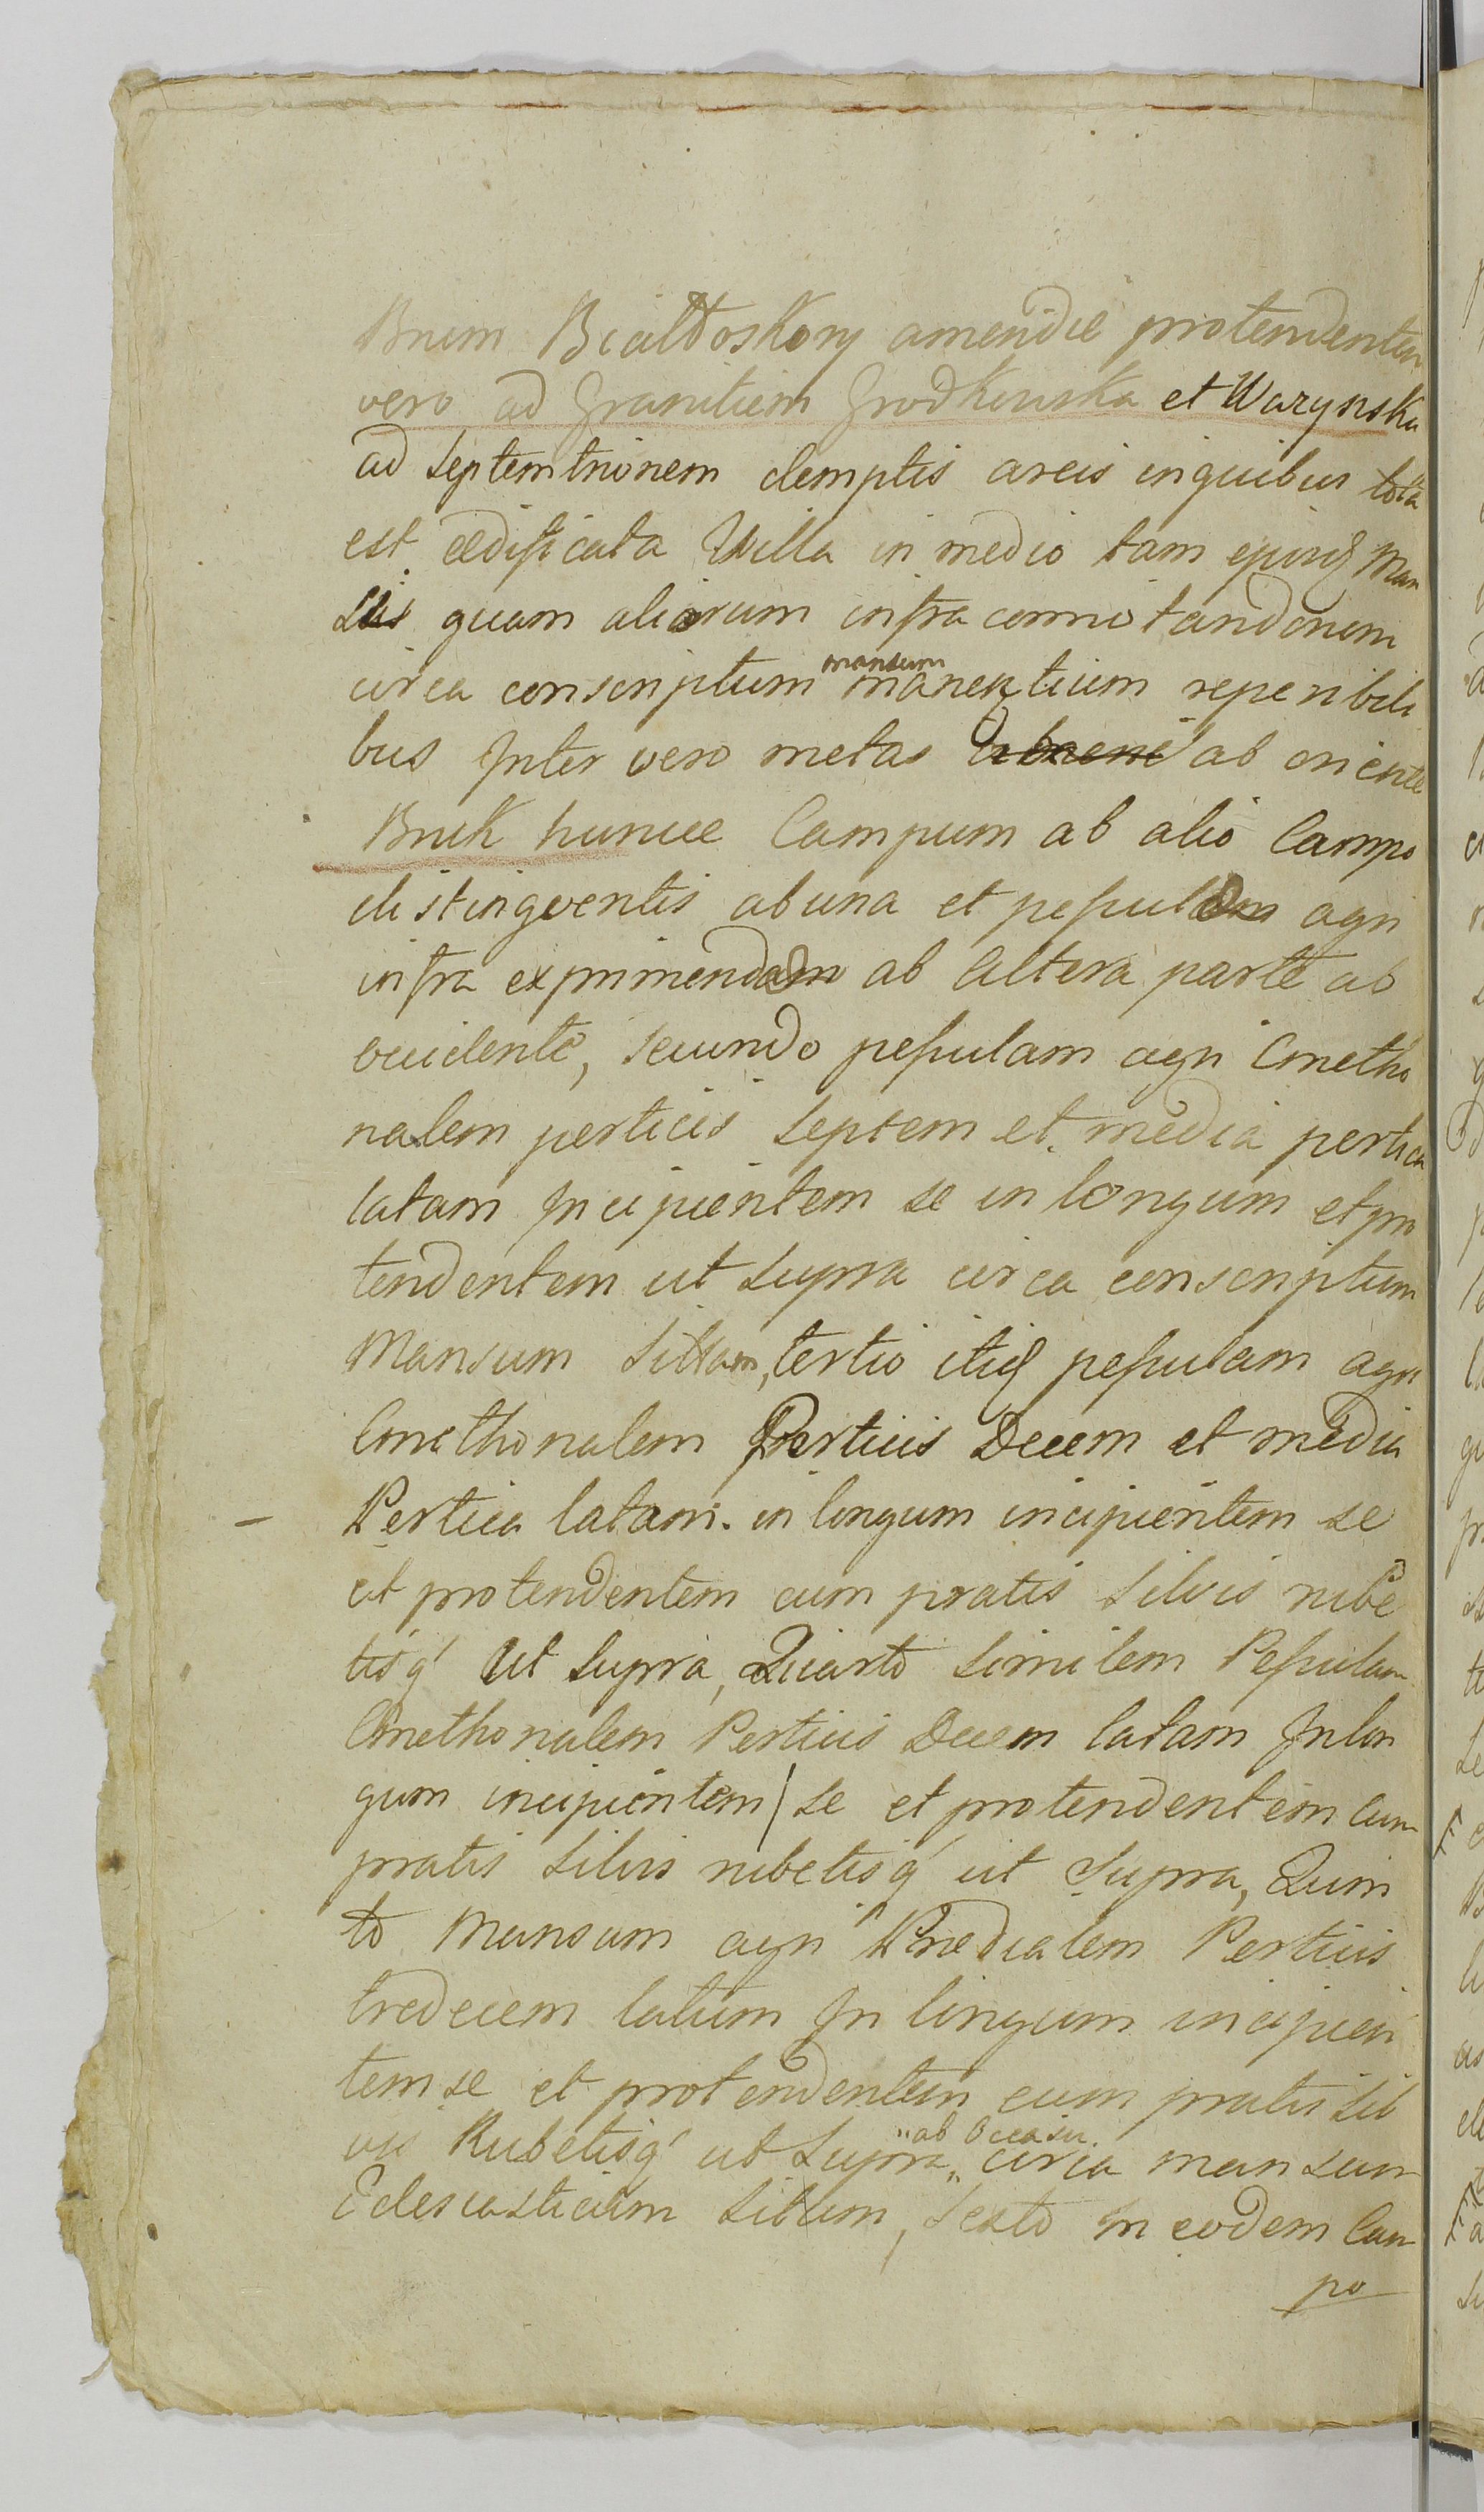 Bnem Białłoskory ameridie protendentem
vero ad Granitiem Grodkowska et Warynska
ad Septemtrionem demptis areis inquibus tota
est. ædificata Willa in medio tam ejusq Man
sus quam aliorum infra connotandorum
circa conscriptum mansum manentium reperibili
bus Inter vero metas ab oriente
Bruk huncce Campum ab alio Campo
distingventis abuna et pepulam agri
infra exprimendam ab altera parte ab
occidente, secundo pepulam agri Cmetho
nalem perticis Septem et. media pertica
latam Incipientem se in longum et pro
tendentem ut Supra circa conscriptum
Mansum Sittam, tertio itiq pepulam agri
Cmethonalem Perticis Decem et media
Pertica latam. in longum incipientem se
et protendentem cum pratis Silvis rube
tisq' Ut Supra, Quarto Similem Pepulam
Cmethonalem Perticis Decem latam Inlon
gum incipientem / se et protendentem cum
pratis Silvis rubetisq' ut Supra, Quin
to Mansum agri Prædialem Perticis
tredecem latum In longum incipien
tem se et protendentem cum pratis Sil
vis Rubetisq' ut Supra „ab Occasu„ circa mansum
Eclesiasticum Situm, Sexto In eodem Cam
po